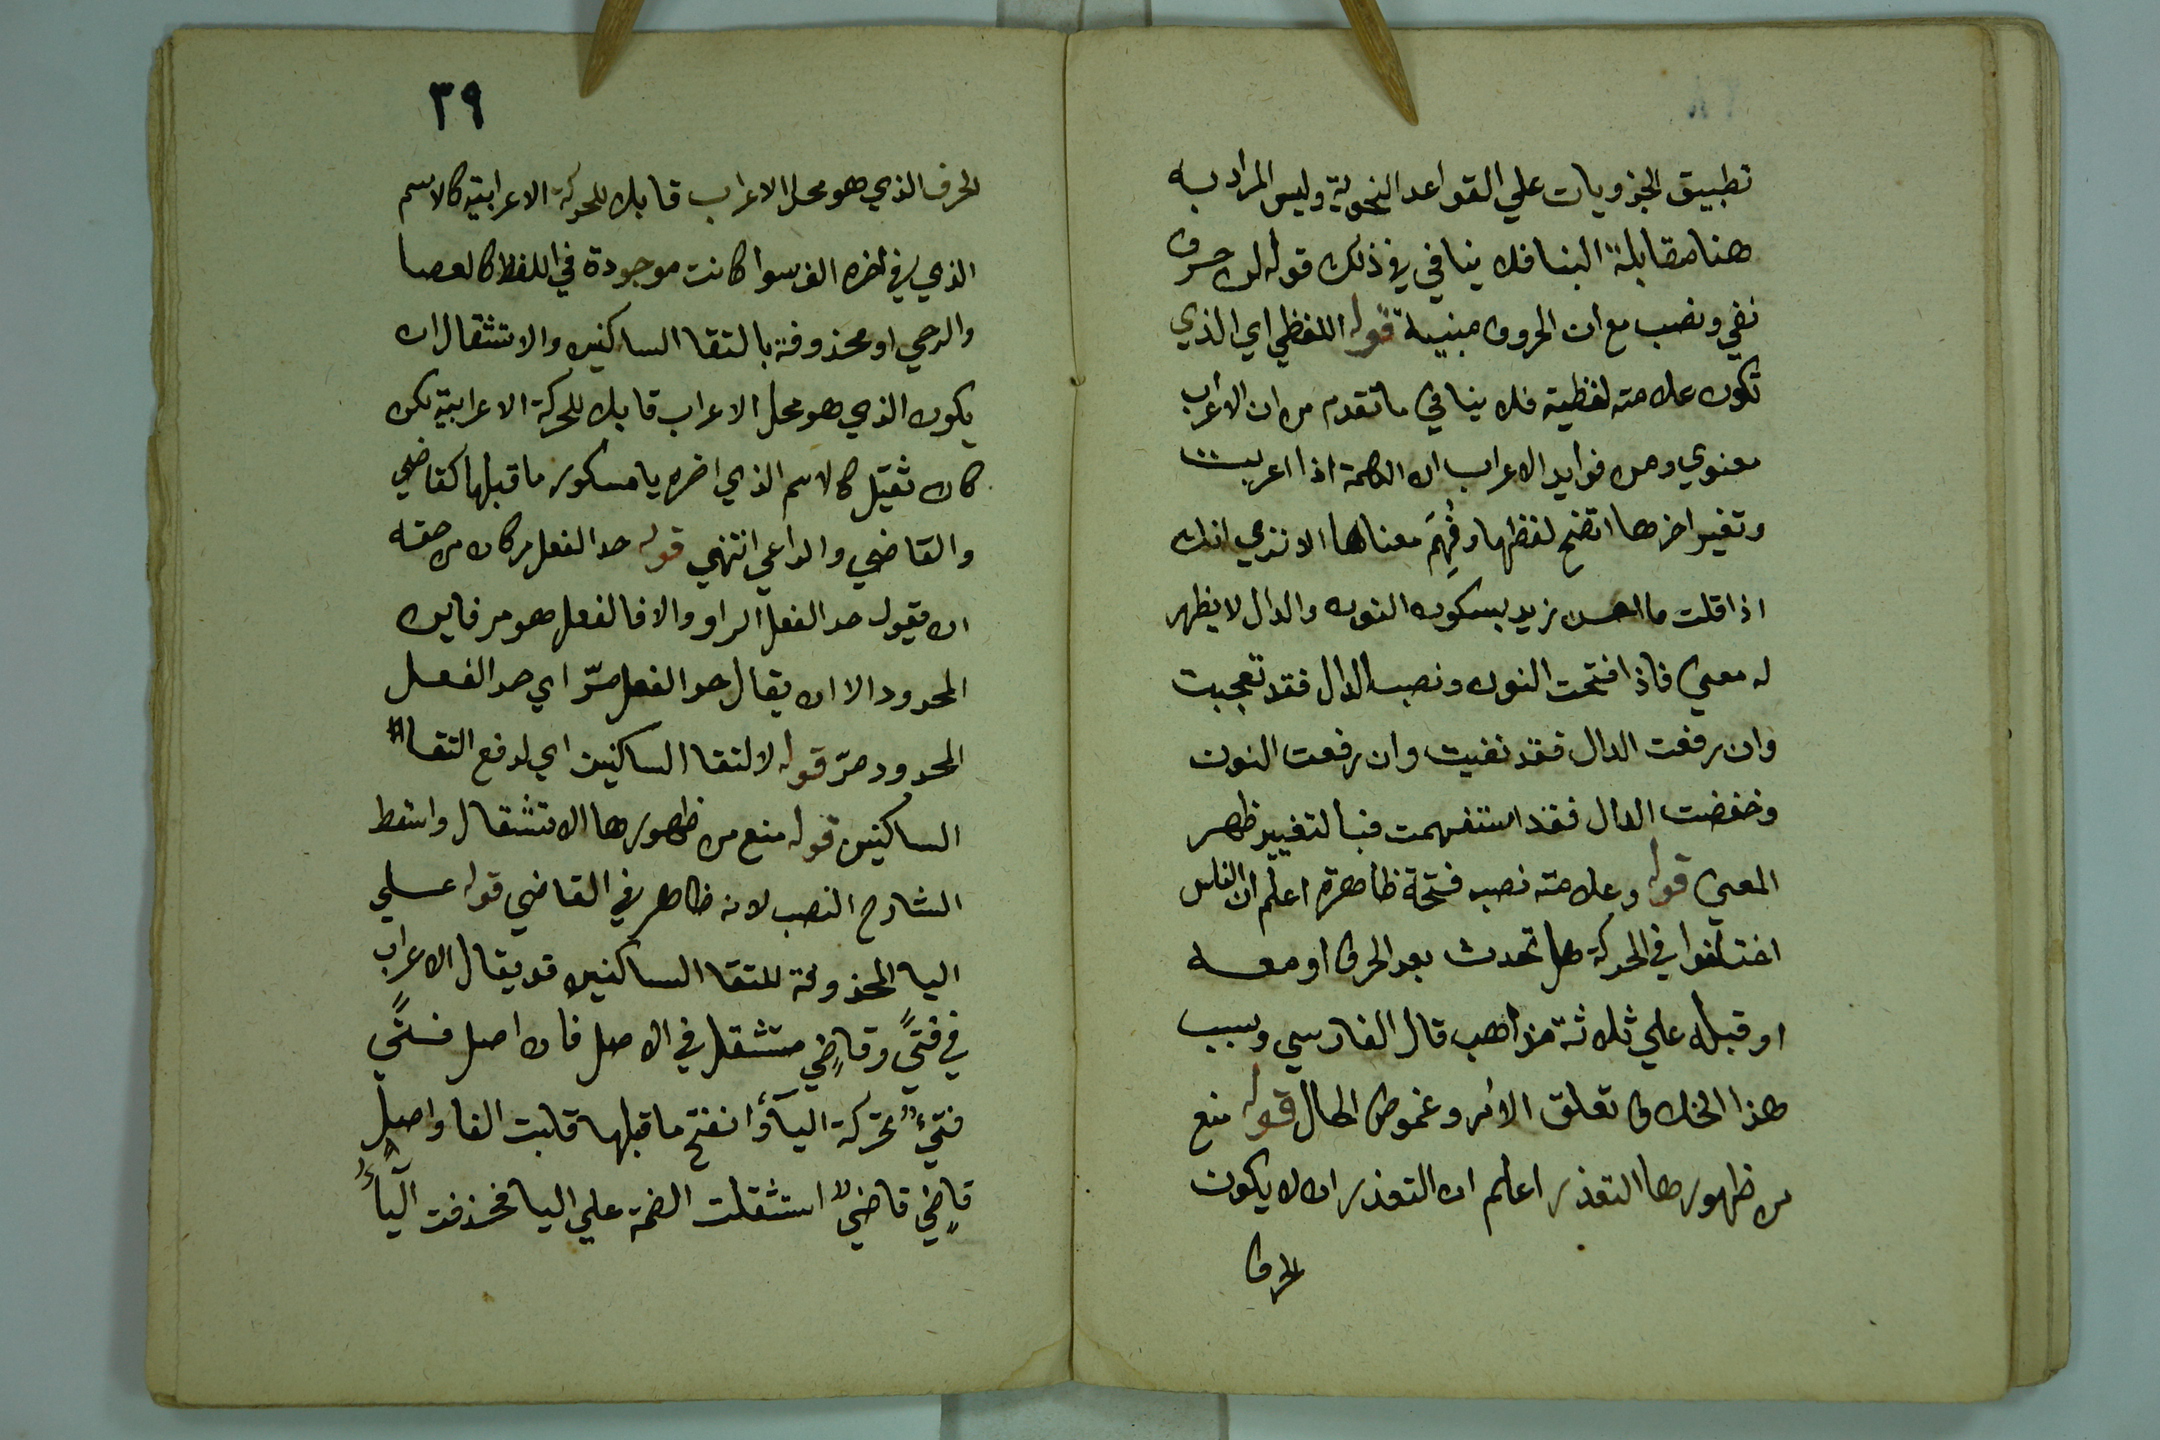 تطبيق الجزويات علي القواعد النحوية وليس المراد به
هنا مقابلة البنا فلا ينافي في ذلك قوله لن حرف
نفي ونصب مع ان الحروف مبنية قوله اللفظي اي الذي
تكون علامته لفظية فلا ينافي ما تقدم من ان الاعراب
معنوي ومن فوايد الاعراب ان الكلمة اذا اعربت
وتغير اخرها اتضح لفظها وفُهِمَ معناها الا تري انك
اذا قلت ما احسن زيد بسكون النون والدال لا يظهر
له معني فاذا فتحت النون ونصب الدال فقد تعجبت
وان رفعت الدال فقد نفيت وان رفعت النون
وخفضت الدال فقد استفهمت فبالتغيير ظهر
المعني قوله وعلامته نصبه فتحة ظاهرة اعلم ان الناس
اختلفوا في الحركة هل تحدث بعد الحرف او معه
او قبله علي ثلاثة مذاهب قال الفارسي وسبب
هذا الخلاف تعلق الامر وغموض الحال قوله منع
من ظهورها التعذر اعلم ان التعذر ان لا يكون
الحرف
٣٩
الحرف الذي هو محل الاعراب قابلا للحركة الاعرابية كالاسم
الذي في اخره الف سوا كانت موجودة في اللفظ كالعصا
والرحي او محذوفة بالتقا الساكنين والاستثقال ان
يكون الذي هو محل الاعراب قابلا للحركة الاعرابية لكن
كان ثقيلا كالاسم الذي اخره يا مسكور ما قبلها كقاضي
والقاضي والداعي انتهي قوله حد الفعل مر كان من حقه
ان يقول حد الفعل والا فالفعل هو مر فاين
المحدود الا ان يقال حد الفعل مرّ اي حد الفعل
المحدود مرّ قوله لالتقا الساكنين اي لدفع التقا
الساكنين قوله منع من ظهورها الاستثقال واسقط
الشارح النصب لانه ظاهر في القاضي قوله علي
اليا المحذوفة للتقا الساكنين قد يقال الاعراب
في فتيً وقاضٍي مستثقل في الاصل فان اصل فتيً
فتيٌ تحركة اليآء وانفتح ما قبلها قلبت الفا واصل
قاضٍي قاضيٌ استثقلت الضمة علي اليا فحذفت اليآء